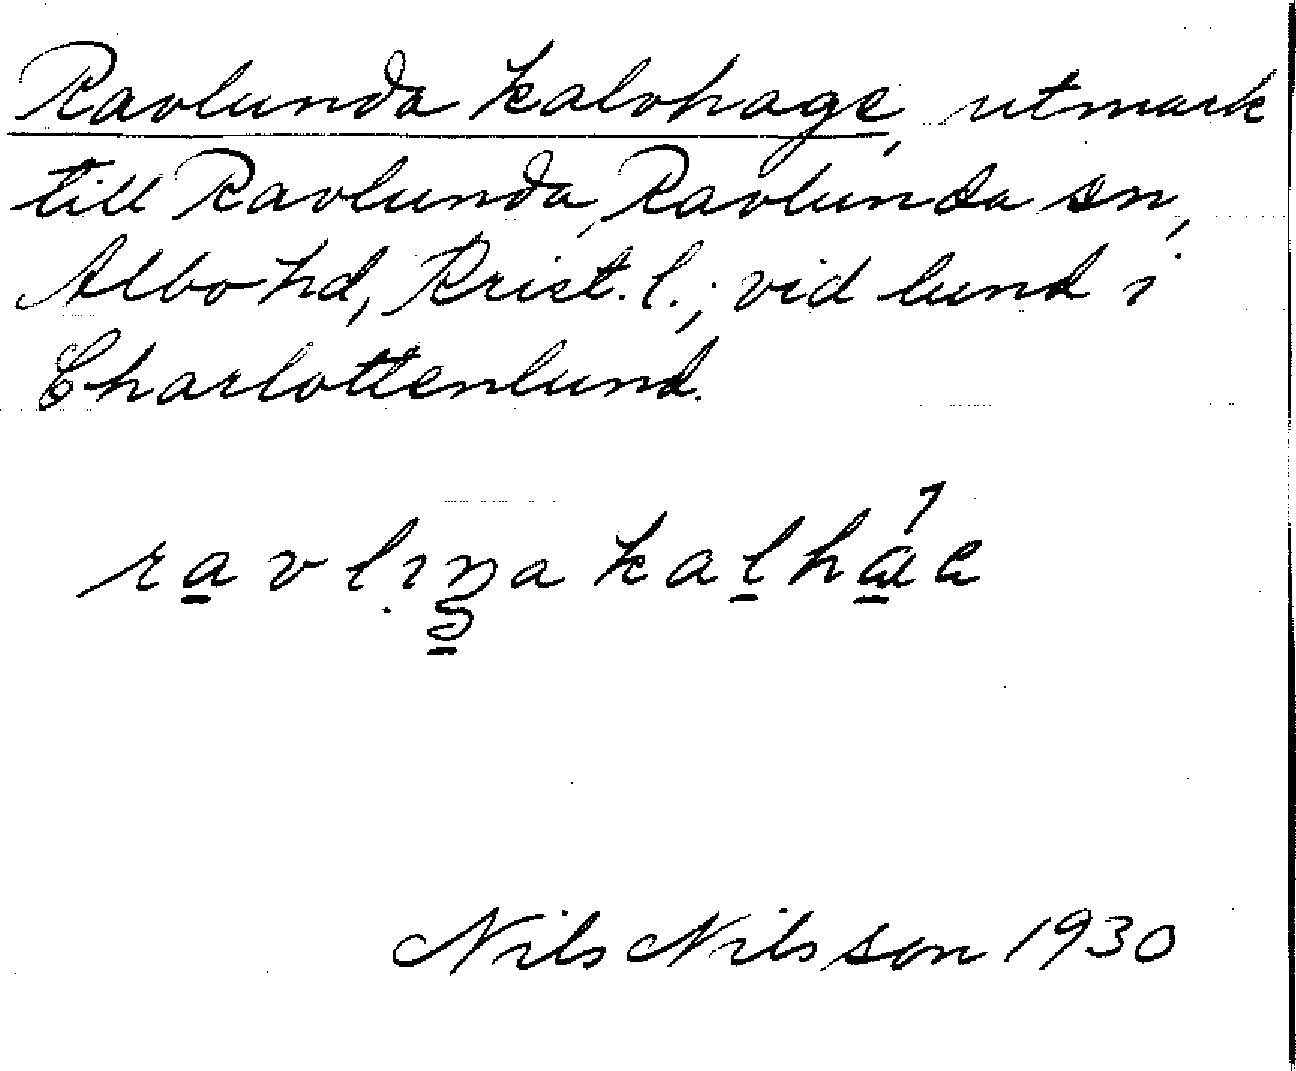 Ravlunda kalvhage, utmark
till Ravlunda, Ravlunda sn,
Albo hd, Krist. l.; vid lund i
Charlottenlund.
Nils Nilsson 1930